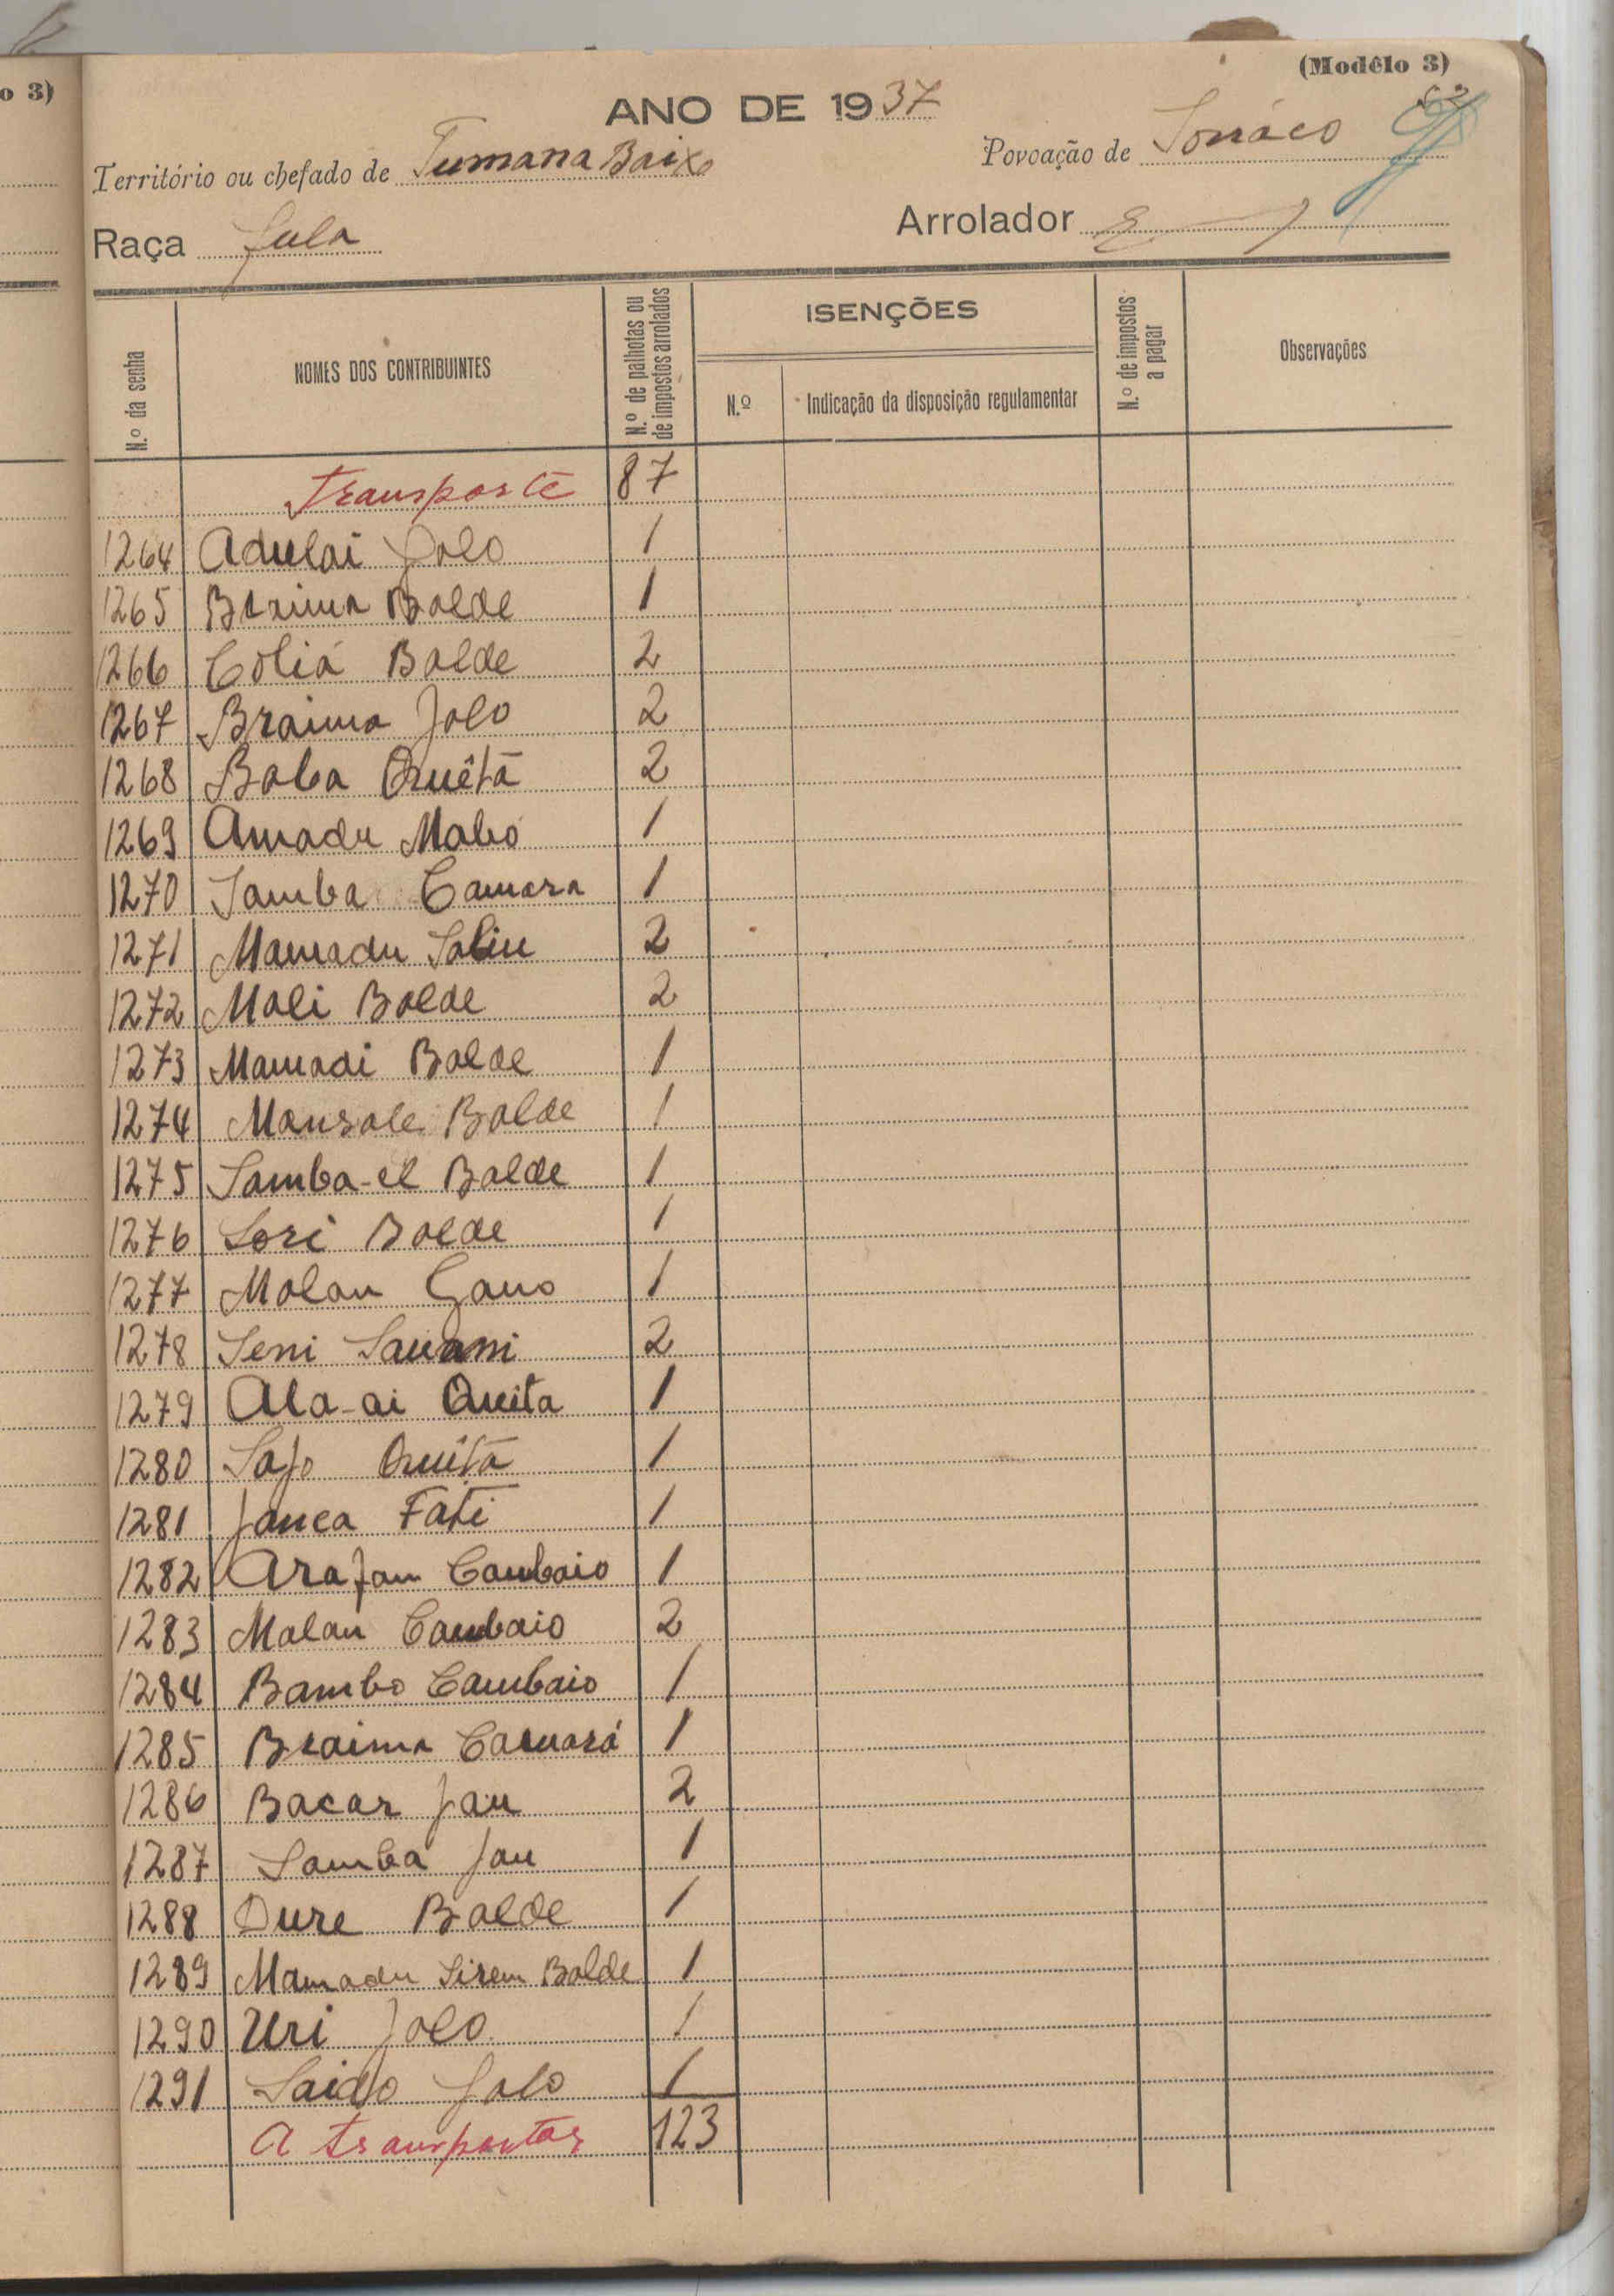 o 3)
(Modêlo 3)
52
ANO DE 1937
Território ou chefado de Tumana Baixo
Povoação de Sonáco
Raça Fula
Arrolador
N.º da senha
NOMES DOS CONTRIBUINTES
N.º de palhotas ou de impostos arrolados
ISENÇÕES
N.º
Indicação da disposição regulamentar
N.º de impostos a pagar
Observações
Transporte 87
1264 Adulai Jalo 1
1265 Braima Balde 1
1266 Coliá Balde 2
1267 Braima Jalo 2
1268 Baba Quêta 2
1269 Amadu Mabó 1
1270 Samba Camara 1
1271 Mamadu Saliu 2
1272 Mali Balde 2
1273 Mamadi Balde 1
1274 Mansale Balde 1
1275 Samba-el Balde 1
1276 Sori Balde 1
1277 Malan Gano 1
1278 Seni Sauani 2
1279 Ala-ai Queita 1
1280 Safo Queita 1
1281 Janca Fati 1
1282 Arafam Cambaio 1
1283 Malan Cambaio 2
1284 Bambo Cambaio 1
1285 Braima Camará 1
1286 Bacar Jau 2
1287 Samba Jau 1
1288 Dure Balde 1
1289 Mamadu Sirem Balde 1
1290 Uri Jalo 1
1291 Saido Jalo 1
A transportar 123